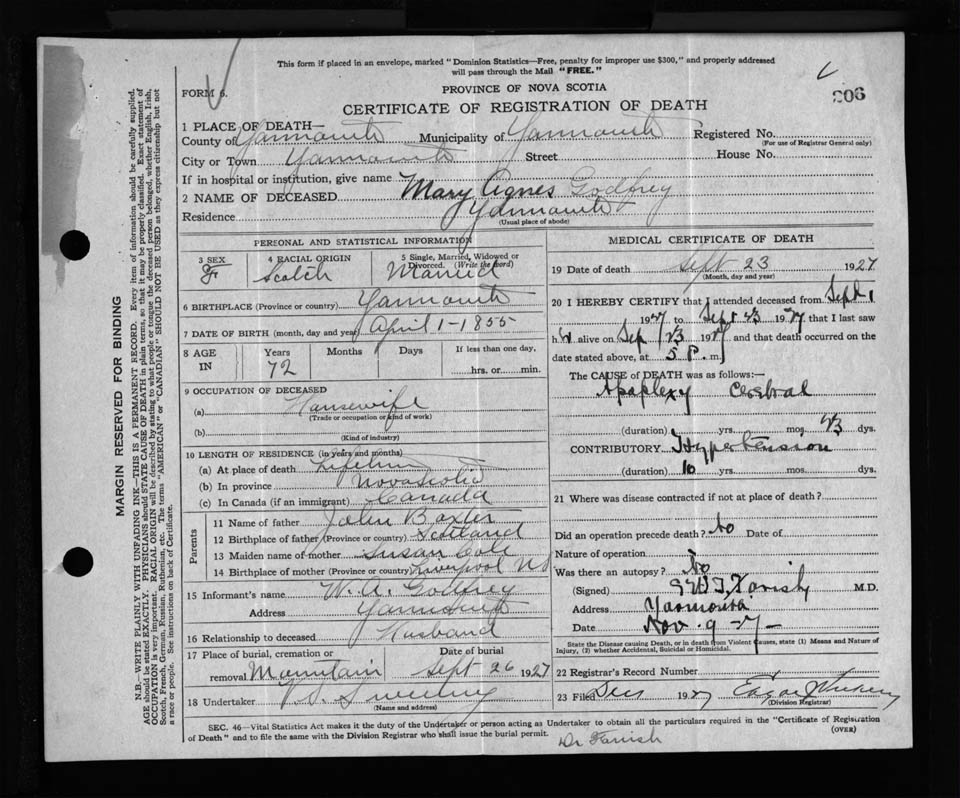 This form if placed in an envelope, marked "Dominion Statistics—Free, penalty for improper use $300," and properly addressed
will pass through the Mail "FREE."
FORM 6.
PROVINCE OF NOVA SCOTIA
306
CERTIFICATE OF REGISTRATION OF DEATH
1 PLACE OF DEATH—
County of Yarmouth Municipality of Yarmouth Registered No.
(For use of Registrar General only)
City or Town Yarmouth Street House No.
If in hospital or institution, give name
2 NAME OF DECEASED Mary Agnes Godfrey
Residence Yarmouth
(Usual place of abode)
PERSONAL AND STATISTICAL INFORMATION
3 SEX 4 RACIAL ORIGIN 5 Single, Married, Widowed or Divorced. (Write the word)
F Scotch Married
6 BIRTHPLACE (Province or country) Yarmouth
7 DATE OF BIRTH (month, day and year) April 1-1855
8 AGE IN Years Months Days If less than one day,
72 hrs. or min.
9 OCCUPATION OF DECEASED
(a) Housewife
(Trade or occupation or kind of work)
(b)
(Kind of industry)
10 LENGTH OF RESIDENCE (in years and months)
(a) At place of death Lifetime
(b) In province Nova Scotia
(c) In Canada (if an immigrant) Canada
Parents
11 Name of father John Baxter
12 Birthplace of father (Province or country) Scotland
13 Maiden name of mother Susan Cole
14 Birthplace of mother (Province or country) Liverpool NS
15 Informant's name W. A. Godfrey
Address Yarmouth
16 Relationship to deceased Husband
17 Place of burial, cremation or removal Date of burial
Mountain Sept 26 1927
18 Undertaker V. S. Sweeny
(Name and address)
MEDICAL CERTIFICATE OF DEATH
19 Date of death Sept 23 1927
(Month, day and year)
20 I HEREBY CERTIFY that I attended deceased from Sept 1
1927 to Sept 23 1927 that I last saw
h alive on Sep 23 1927 and that death occurred on the
date stated above, at 5 P. m.
The CAUSE of DEATH was as follows:—
Apoplexy Cerebral
(duration) yrs. mos. 23 dys.
CONTRIBUTORY Hypertension
(duration) 10 yrs. mos. dys.
21 Where was disease contracted if not at place of death?
Did an operation precede death? No Date of
Nature of operation
Was there an autopsy? No
(Signed) Farish M.D.
Address Yarmouth
Date Nov. 9-7-
State the Disease causing Death, or in death from Violent Causes, state (1) Means and Nature of
Injury, (2) whether Accidental, Suicidal or Homicidal.
22 Registrar's Record Number
23 Filed Dec 1927 Edgar
(Division Registrar)
SEC. 46—Vital Statistics Act makes it the duty of the Undertaker or person acting as Undertaker to obtain all the particulars required in the "Certificate of Registration
of Death" and to file the same with the Division Registrar who shall issue the burial permit.
(OVER)
Dr Farish
MARGIN RESERVED FOR BINDING
N.B.—WRITE PLAINLY WITH UNFADING INK—THIS IS A PERMANENT RECORD. Every item of information should be carefully supplied.
AGE should be stated EXACTLY. PHYSICIANS should STATE CAUSE OF DEATH in plain terms, so that it may be properly classified. Exact statement of
OCCUPATION is very important. RACIAL ORIGIN will be described by stating to what people or tongue the deceased person belonged, whether English, Irish,
Scotch, French, German, Russian, Ruthenian, etc. The terms "AMERICAN" or "CANADIAN" SHOULD NOT BE USED as they express citizenship but not
a race or people. See instructions on back of Certificate.